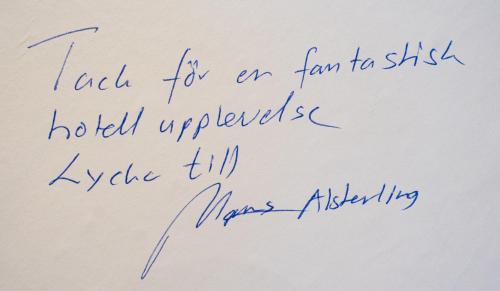 Tack för en fantastisk
hotell upplevelse
Lycka till
Alsterling